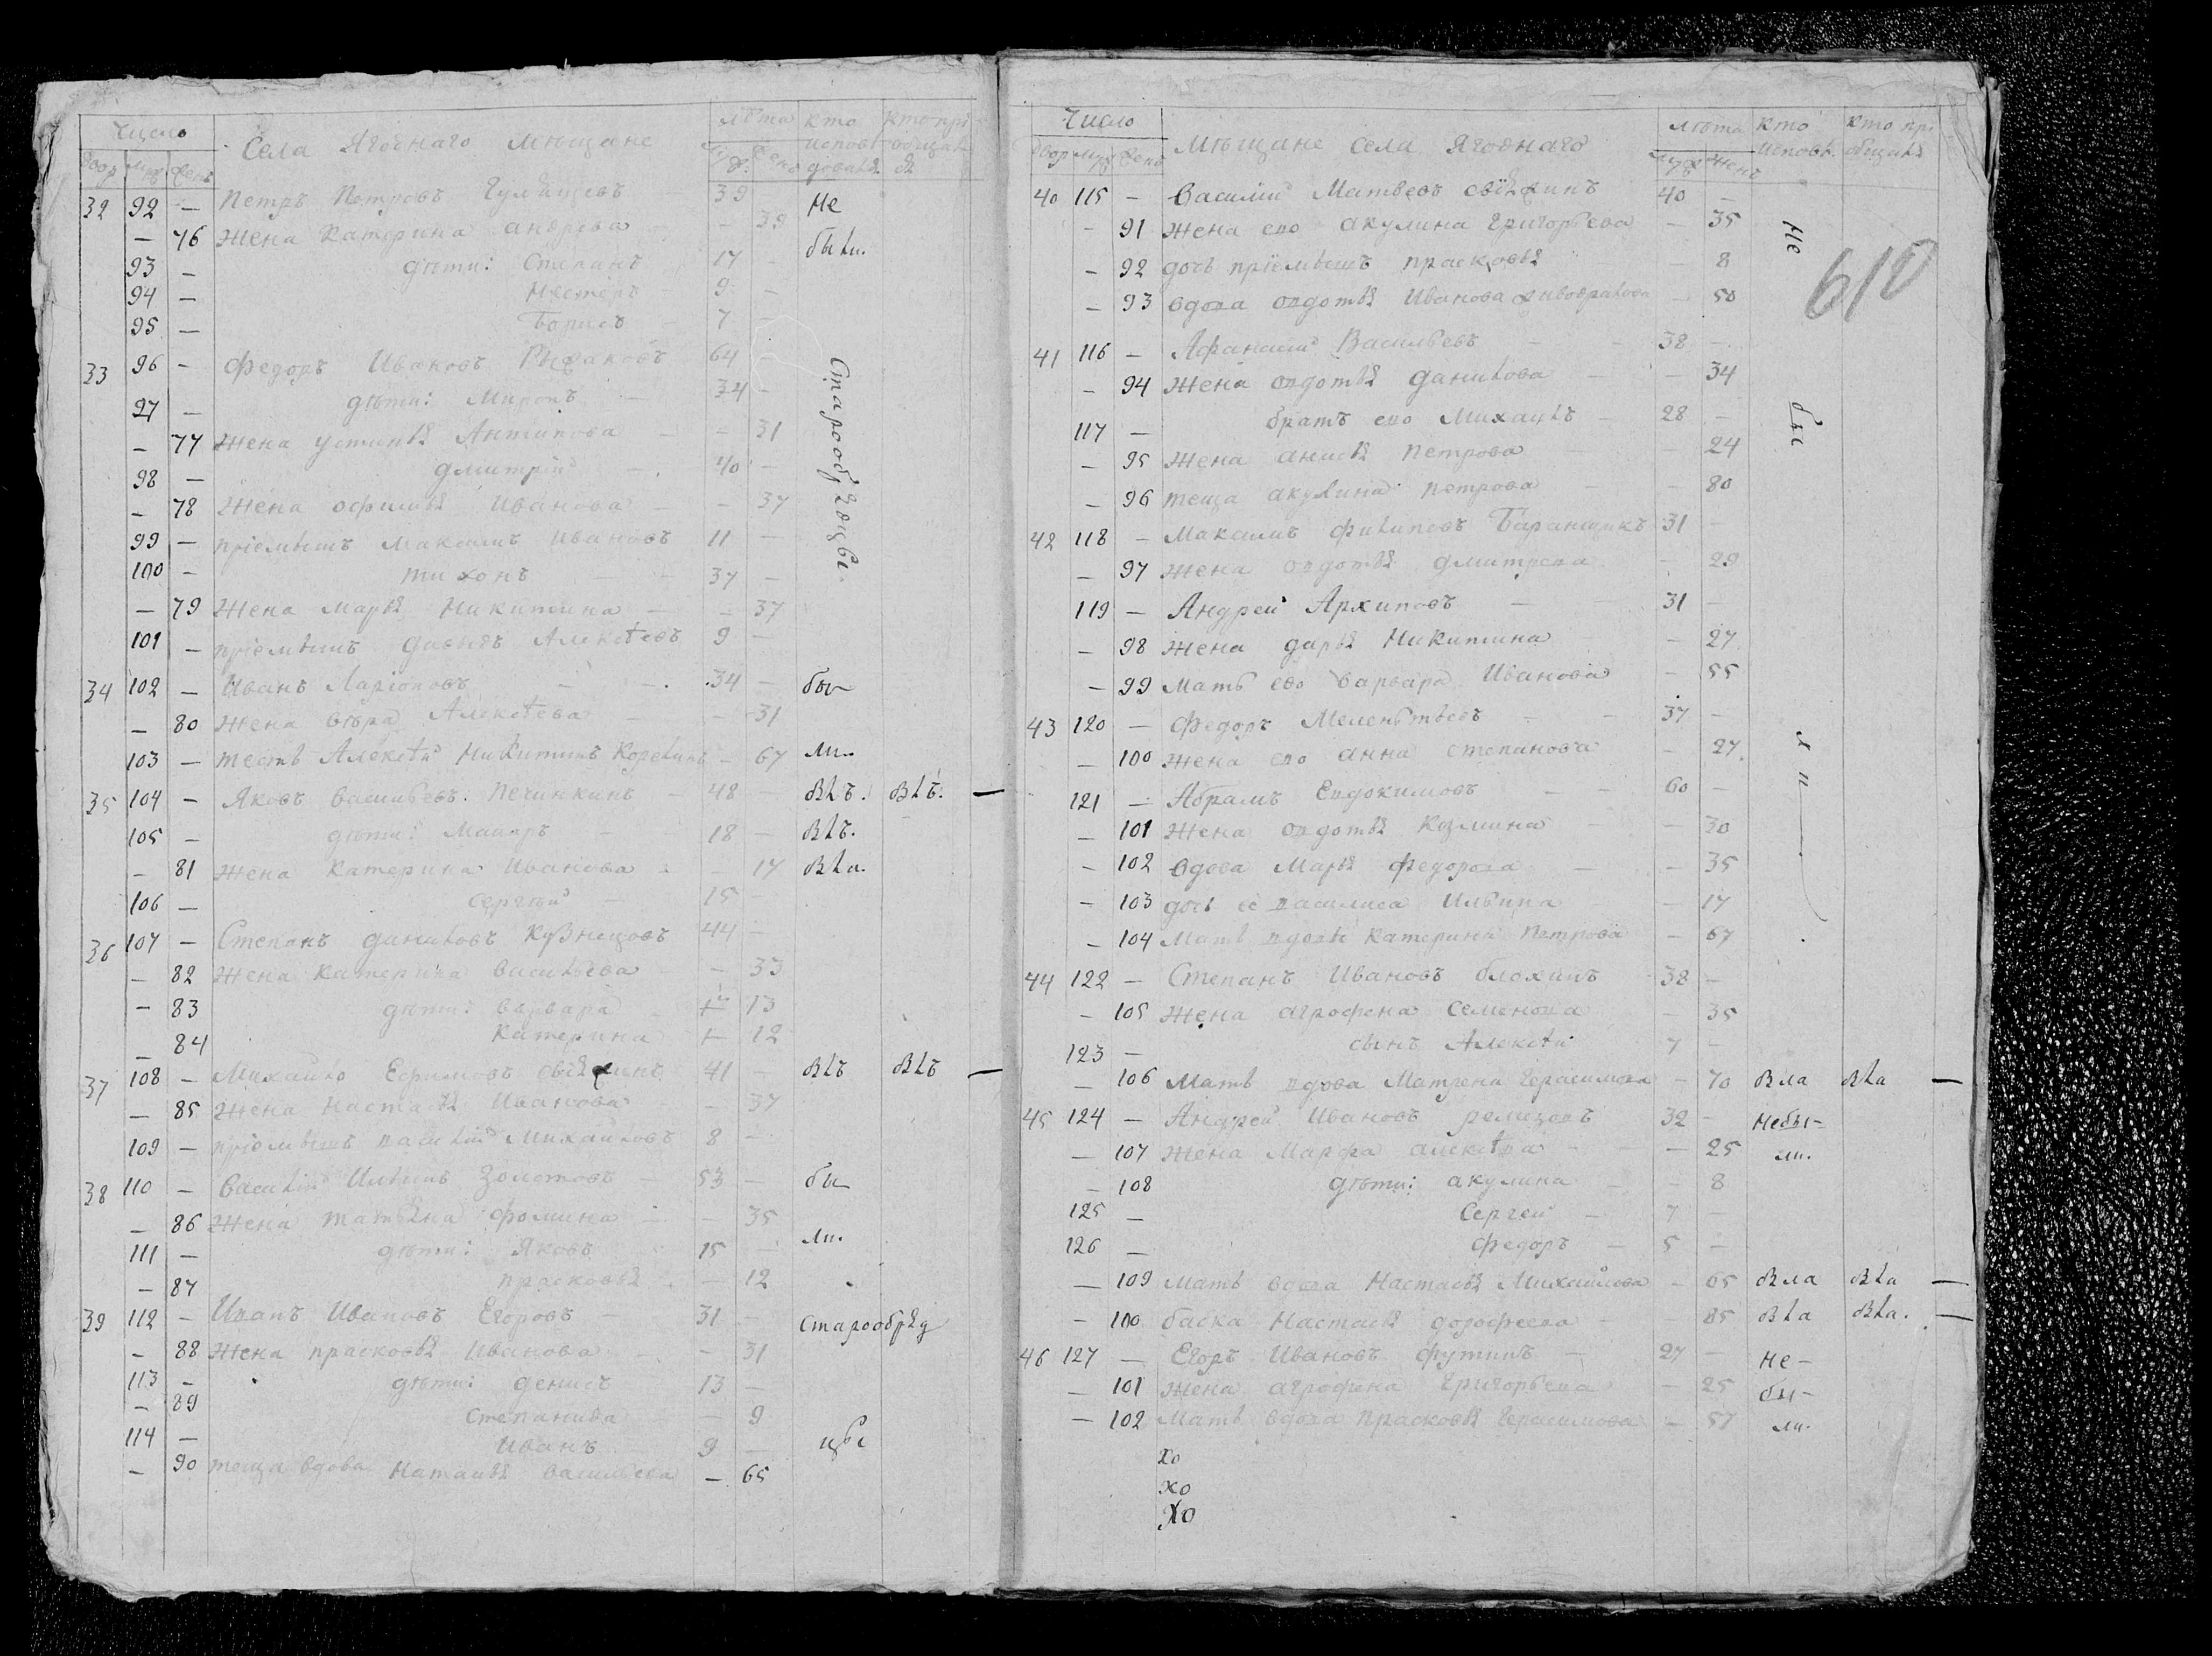 Число Села Ягоднаго мѣщане лѣта кто исповѣдовался кто пріобщался
двор муж жен муж. жен
32 92 — Петръ Петровъ 39 Не
— 76 Жена Катерина андрева — 39 были.
93 — дѣти: Степанъ 17 —
94 — Нестеръ 9 —
95 — Борисъ 7 —
33 96 — Федоръ Ивановъ 64 — Старообрядцы.
97 — дѣти: Миронъ 34 —
— 77 Жена устинья Антипова — 31
98 — Дмитрій 40 —
— 78 Жена офимья Иванова — 37
99 — пріемышъ Максимъ Ивановъ 11 —
100 — тихонъ 37 —
— 79 Жена марья Никитина — 37
101 — пріемышъ Алексѣевъ 9 —
34 102 — Иванъ Ларіоновъ 34 — бы
— 80 Жена вѣра Алексѣева — 31
103 — тесть Алексѣй Никитинъ — 67 ли.
35 104 — Яковъ васильевъ Печинкинъ 48 — влъ. влъ. —
105 — дѣти: 18 — влъ.
— 81 Жена Катерина Иванова — 17 вла.
106 — сергѣй 15 —
36 107 — Степанъ даниловъ Кузнецовъ 44 —
— 82 Жена Катерина васильева — 33
— 83 дѣти: варвара — 13
— 84 Катерина — 12
37 108 — Михайло Ефимовъ 41 — влъ влъ —
— 85 Жена настасья Иванова — 37
109 — пріемышъ василій Михайловъ 8 —
38 110 — василій Ильинъ Золотовъ 53 — бы
— 86 Жена татьяна фомина — 35 ли.
111 — дѣти: Яковъ 15 —
— 87 прасковья — 12
39 112 — Иванъ Ивановъ Егоровъ 31 — старообряд
— 88 Жена прасковья Иванова — 31
113 — дѣти: денисъ 13 —
— 89 степанида — 9
114 — Иванъ 9 — цы
— 90 теща вдова Наталья васильева — 65
Число Мѣщане села Ягоднаго лѣта кто исповѣ. кто пріобщался
двор муж жен муж жен
610
40 115 — Василій Матвеевъ 40 — Не
— 91 жена его акулина григорьева — 35
— 92 дочь пріемышъ прасковья — 8
— 93 вдова овдотья Иванова — 50
41 116 — Афанасій Васильевъ 38 —
— 94 жена овдотья данилова — 34 бы
117 — братъ его Михаилъ 28 —
— 95 жена анисья петрова — 24
— 96 теща акулина петрова — 80
42 118 — Максимъ филиповъ Баранщикъ 31 —
— 97 жена овдотья дмитрева — 29
119 — Андрей Архиповъ 31 —
— 98 жена дарья Никитина — 27
— 99 Мать его варвара Иванова — 55
43 120 — Федоръ Мелентьевъ 37 — ли
— 100 жена его анна степанова — 27
121 — Абрамъ Евдокимовъ 60 —
— 101 жена овдотья Козмина — 30
— 102 вдова Марья федорова — 35
— 103 дочь её василиса Ильина — 17
— 104 Мать вдовы катерина Петрова — 67
44 122 — Степанъ Ивановъ блохинъ 38 —
— 105 жена агрофена семенова — 35
123 — сынъ Алексѣй 7 —
— 106 Мать вдова Матрена герасимова — 70 Вла вла —
45 124 — Андрей Ивановъ ремизовъ 32 — Небы-
— 107 жена Марфа алексѣва — 25 ли.
— 108 дѣти: акулина — 8
125 — Сергей 7 —
126 — федоръ 5 —
— 109 мать вдова Настасья Михайлова — 65 Вла Вла —
— 100 бабка Настасья дорофеева — 85 Вла Вла. —
46 127 — Егоръ Ивановъ 27 — не-
— 101 жена агрофена григорьева — 25 бы-
— 102 Мать вдова прасковья герасимова — 57 ли.
хо
хо
Хо